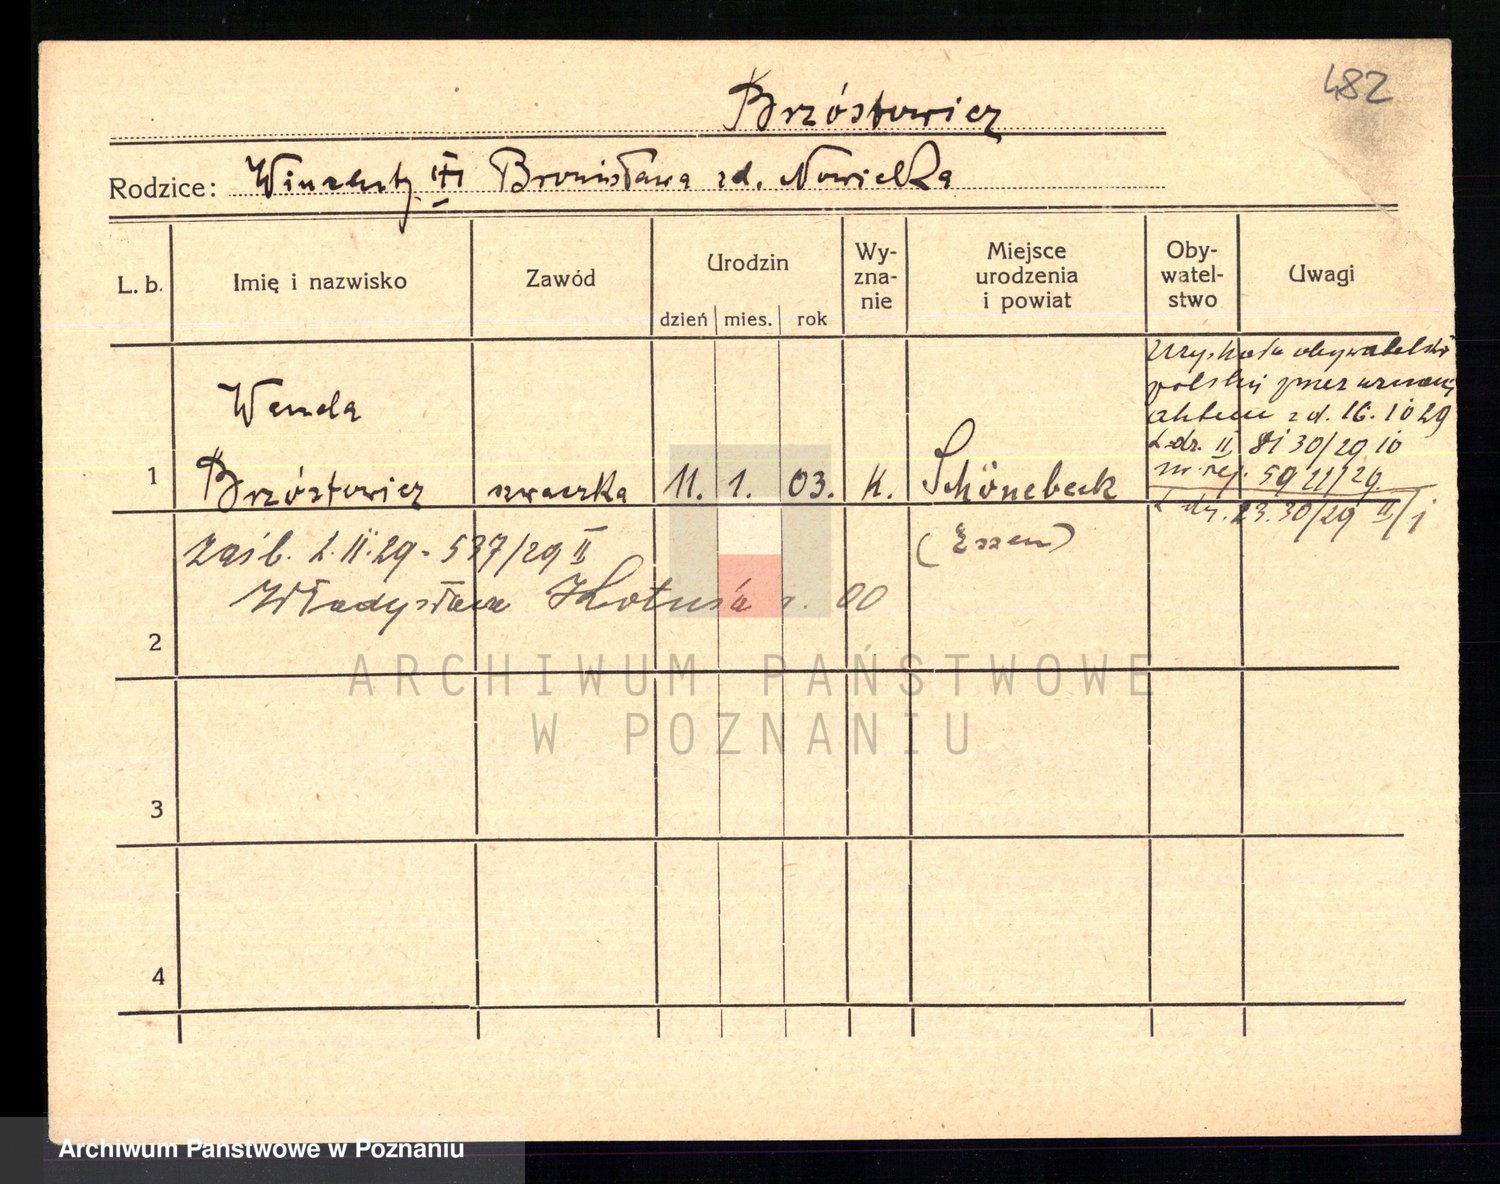 482
Brzóstowicz
Rodzice: Wincenty Bronisława zd. Nowicka
L. b. Imię i nazwisko Zawód Urodzin Wy-zna-nie Miejsce urodzenia i powiat Oby-watel-stwo Uwagi
dzień mies. rok
Uzyskała obywatelstw
polskie przez
aktem z d. 16. 10 29
L.dz. II 8130/29 10
nr. rej. 5921/29
L dz. 23.30/29 II/1
Wanda
1 Brzóstowicz szwaczka 11. 1. 03. K. Schönebeck
(Essen)
Zaśl. 2.II.29 - 537/29 II
Władysława 00
2
3
4
ARCHIWUM PAŃSTWOWE
W POZNANIU
Archiwum Państwowe w Poznaniu